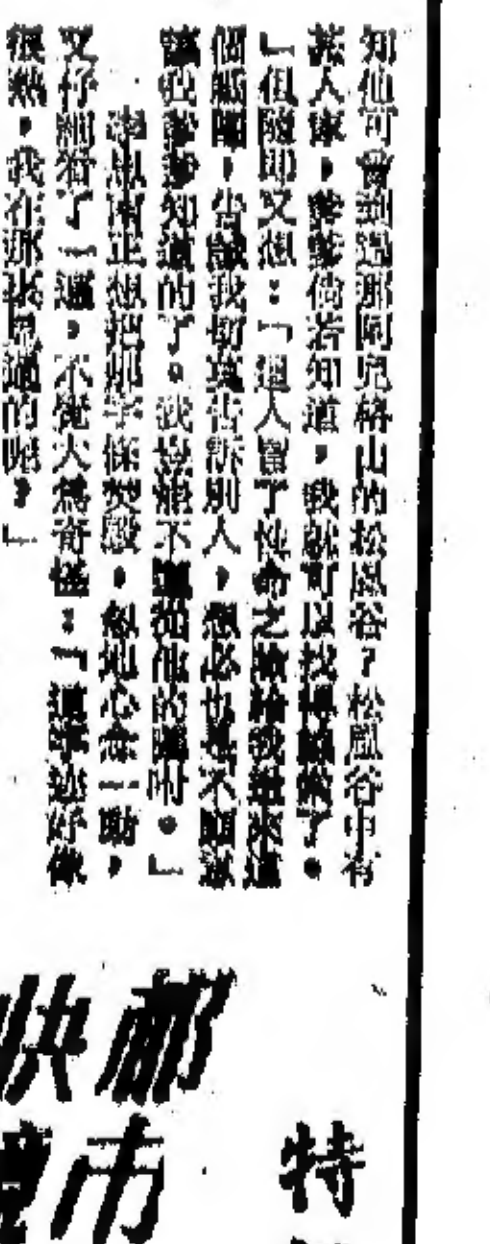 知他可曾到過那阿兒格山的松風谷?松風谷中有
甚人家,爹爹倘若知道,我就可以找得線索了。
』但隨即又想:『這人冒了性命之險給我遞來這
個紙團,告誡我切莫告訴別人,想必也是不願意
讓我爹爹知道的了。我豈能不聽從他的囑咐。』
正想把那字條焚燬,忽地心念一動,
又仔細看了一遍,不覺大為奇怪:『這筆迹好像
很熟,我在那裏見過的呢?』
特
郵市
快